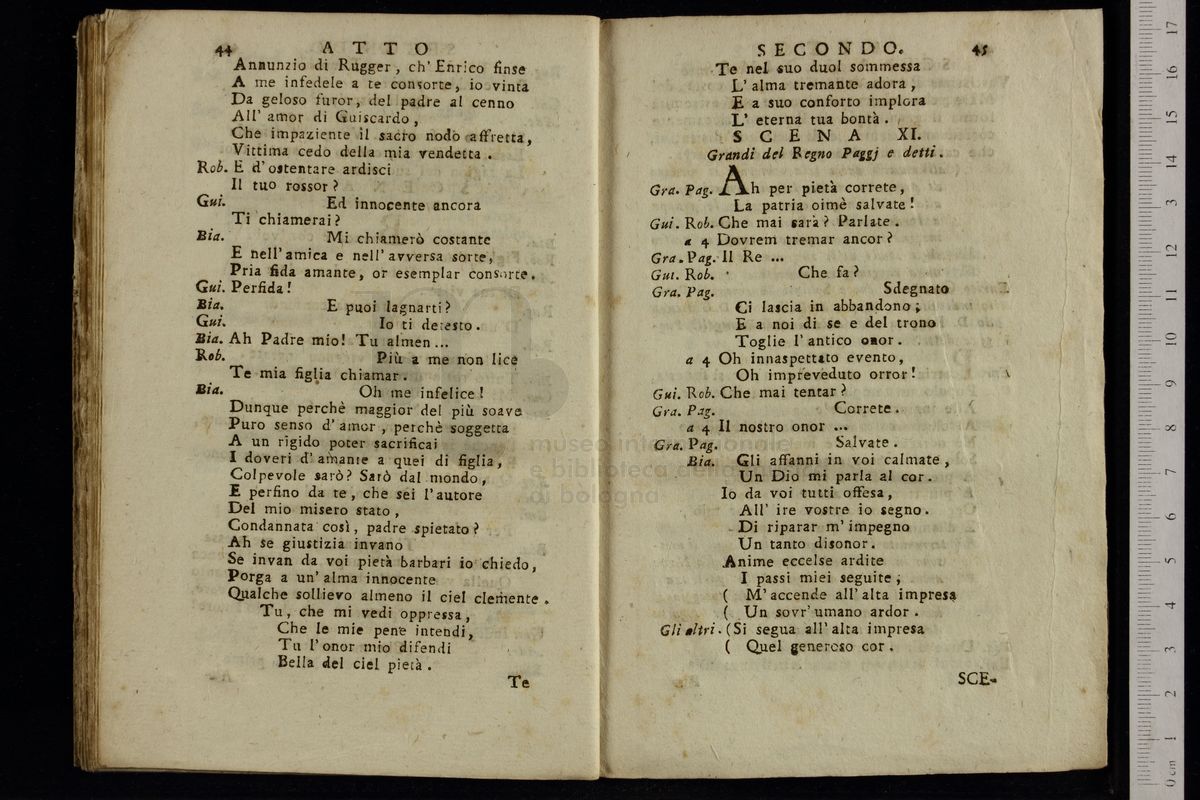 44 ATTO
Annunzio di Rugger, ch' Enrico finse
A me infedele a te consorte, io vinta
Da geloso furor, del padre al cenno
All' amor di Guiscardo,
Che impaziente il sacro nodo affretta,
Vittima cedo della mia vendetta.
Rob. E d' ostentare ardisci
Il tuo rossor?
Gui. Ed innocente ancora
Ti chiamerai?
Bia. Mi chiamerò costante
E nell' amica e nell' avversa sorte,
Pria fida amante, or esemplar consorte.
Gui. Perfida!
Bia. E puoi lagnarti?
Gui. Io ti detesto.
Bia. Ah Padre mio! Tu almen ...
Rob. Più a me non lice
Te mia figlia chiamar.
Bia. Oh me infelice!
Dunque perchè maggior del più soave
Puro senso d' amor, perchè soggetta
A un rigido poter sacrificai
I doveri d' amante a quei di figlia,
Colpevole sarò? Sarò dal mondo,
E perfino da te, che sei l' autore
Del mio misero stato,
Condannata così, padre spietato?
Ah se giustizia invano
Se invan da voi pietà barbari io chiedo,
Porga a un' alma innocente
Qualche sollievo almeno il ciel clemente.
Tu, che mi vedi oppressa,
Che le mie pene intendi,
Tu l' onor mio difendi
Bella del ciel pietà.
Te
SECONDO. 45
Te nel suo duol sommessa
L' alma tremante adora,
E a suo conforto implora
L' eterna tua bontà.
SCENA XI.
Grandi del Regno Paggj e detti.
Gra. Pag. Ah per pietà correte,
La patria oimè salvate!
Gui. Rob. Che mai sarà? Parlate.
a 4 Dovrem tremar ancor?
Gra. Pag. Il Re ...
Gui. Rob. Che fa?
Gra. Pag. Sdegnato
Ci lascia in abbandono;
E a noi di se e del trono
Toglie l' antico onor.
a 4 Oh innaspettato evento,
Oh impreveduto orror!
Gui. Rob. Che mai tentar?
Gra. Pag. Correte.
a 4 Il nostro onor ...
Gra. Pag. Salvate.
Bia. Gli affanni in voi calmate,
Un Dio mi parla al cor.
Io da voi tutti offesa,
All' ire vostre io segno.
Di riparar m' impegno
Un tanto disonor.
Anime eccelse ardite
I passi miei seguite;
( M' accende all' alta impresa
( Un sovr' umano ardor.
Gli altri. (Si segua all' alta impresa
( Quel generoso cor.
SCE-
museo internazionale
e biblioteca della
di bologna
0 cm 1 2 3 4 5 6 7 8 9 10 11 12 13 14 15 16 17